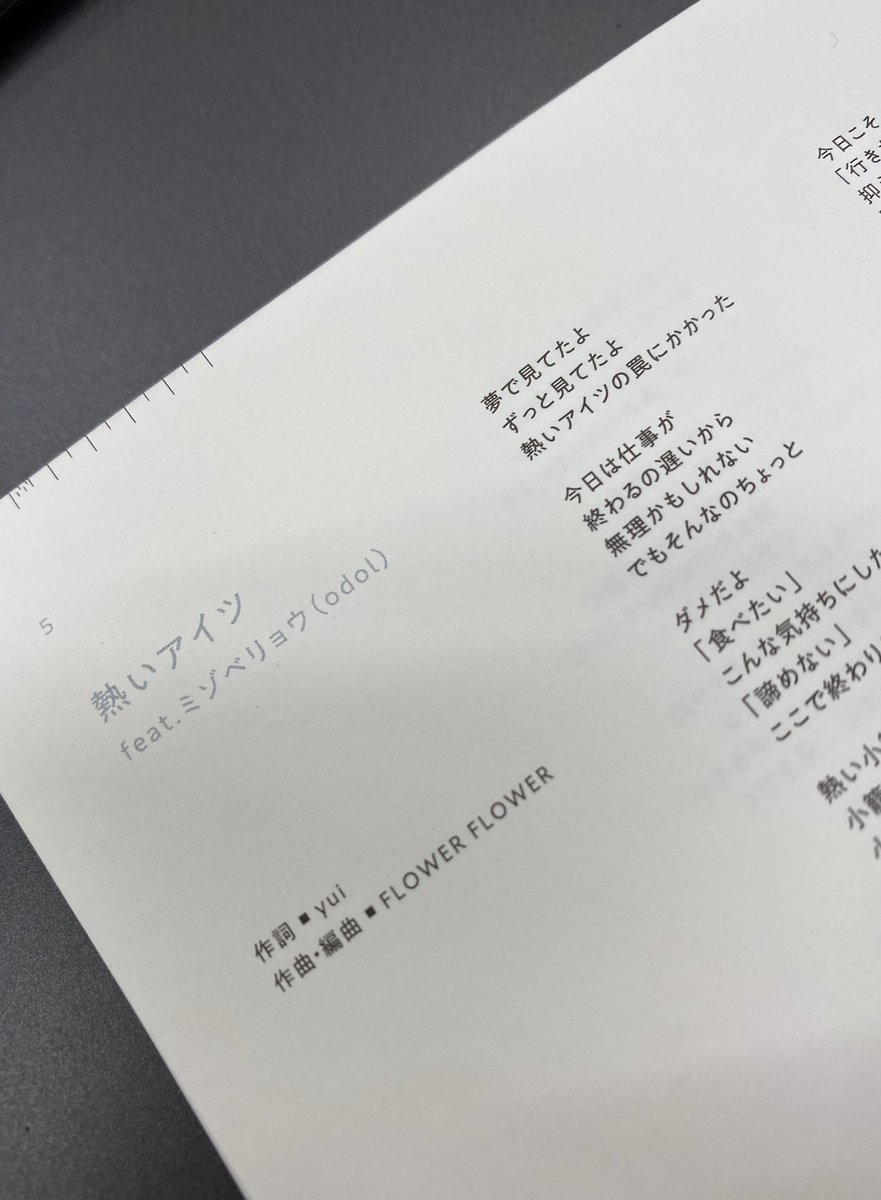 5
熱いアイツ
feat.ミゾベリョウ(odol)
作詞■yui
作曲・編曲■FLOWER FLOWER
夢で見てたよ
ずっと見てたよ
熱いアイツの罠にかかった
今日は仕事が
終わるの遅いから
無理かもしれない
でもそんなのちょっと
ダメだよ
「食べたい」
こんな気持ちにした
「諦めない」
ここで終わり
熱い小
小籠
今日こそ
「行き
抑